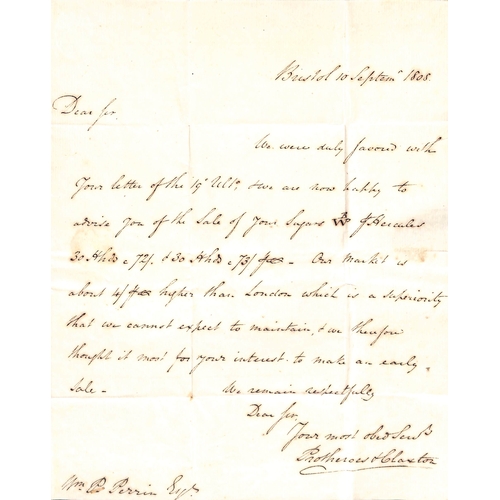 Bristol 10 Septemr 1808.
Dear Sir,
We were duly favored with
Your letter of the 19 Ulto, & we are now happy to
advise You of the Sale of Your Sugars ⅌ Hercules
30 Hhds @ 72/. & 30 Hhds @ 73/ - Our market is
about 4/ higher than London which is a superiority
that we cannot expect to maintain, & we therefore
thought it most for your interest to make an early
Sale -
We remain respectfully
Dear Sir,
Your most obed Servts
Protheroes & Claxton
Wm P. Perrin Esqr